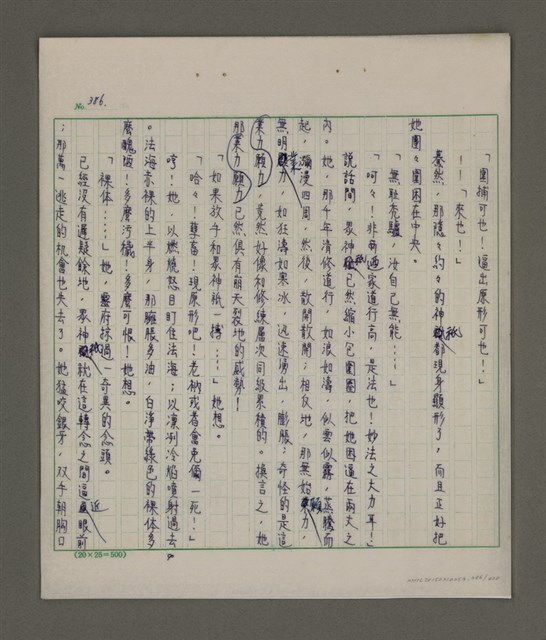 No. 386.
「圍捕可也！逼出原形可也！」
！！「來也！」
驀然，那隱々約々的神祇都現身顯形了，而且正好把
她團々圍困在中央。
「無恥禿驢，汝自己無能…！」
「呵々！非關洒家道行高，是法也！妙法之大力耳！」
說話間，眾神祇已然縮小包圍圈，把她困逼在兩丈之
內。她，那千年清修道行，如浪如濤，似雲似霧，蒸騰而
起，瀰漫四周，然後，散開散開；相反地，那無始業力，
無明願力，如狂濤如寒冰，迅速湧出，膨脹；奇怪的是這
業力願力，竟然好像和修練層次同級累積的。換言之，她
那業力願力已然俱有崩天裂地的威勢！
「如果放手和眾神祇一搏…」她想。
「哈々！孽畜！現原形吧！老衲或者會免儞一死！」
哼！她，以燃燒怒目盯住法海；以凍冽冷焰噴射過去
。法海赤裸的上半身，那臃脹多油，白淨帶綠色的裸体多
麼醜惡！多麼污穢！多麼可恨！她想。
「裸体…」她，靈府抹過一奇異的念頭。
已經沒有遲疑餘地，眾神祇就在這轉念之間逼近眼前
；那萬一逃走的机會也失去了。她猛咬銀牙，双手朝胸口
(20×25=500)